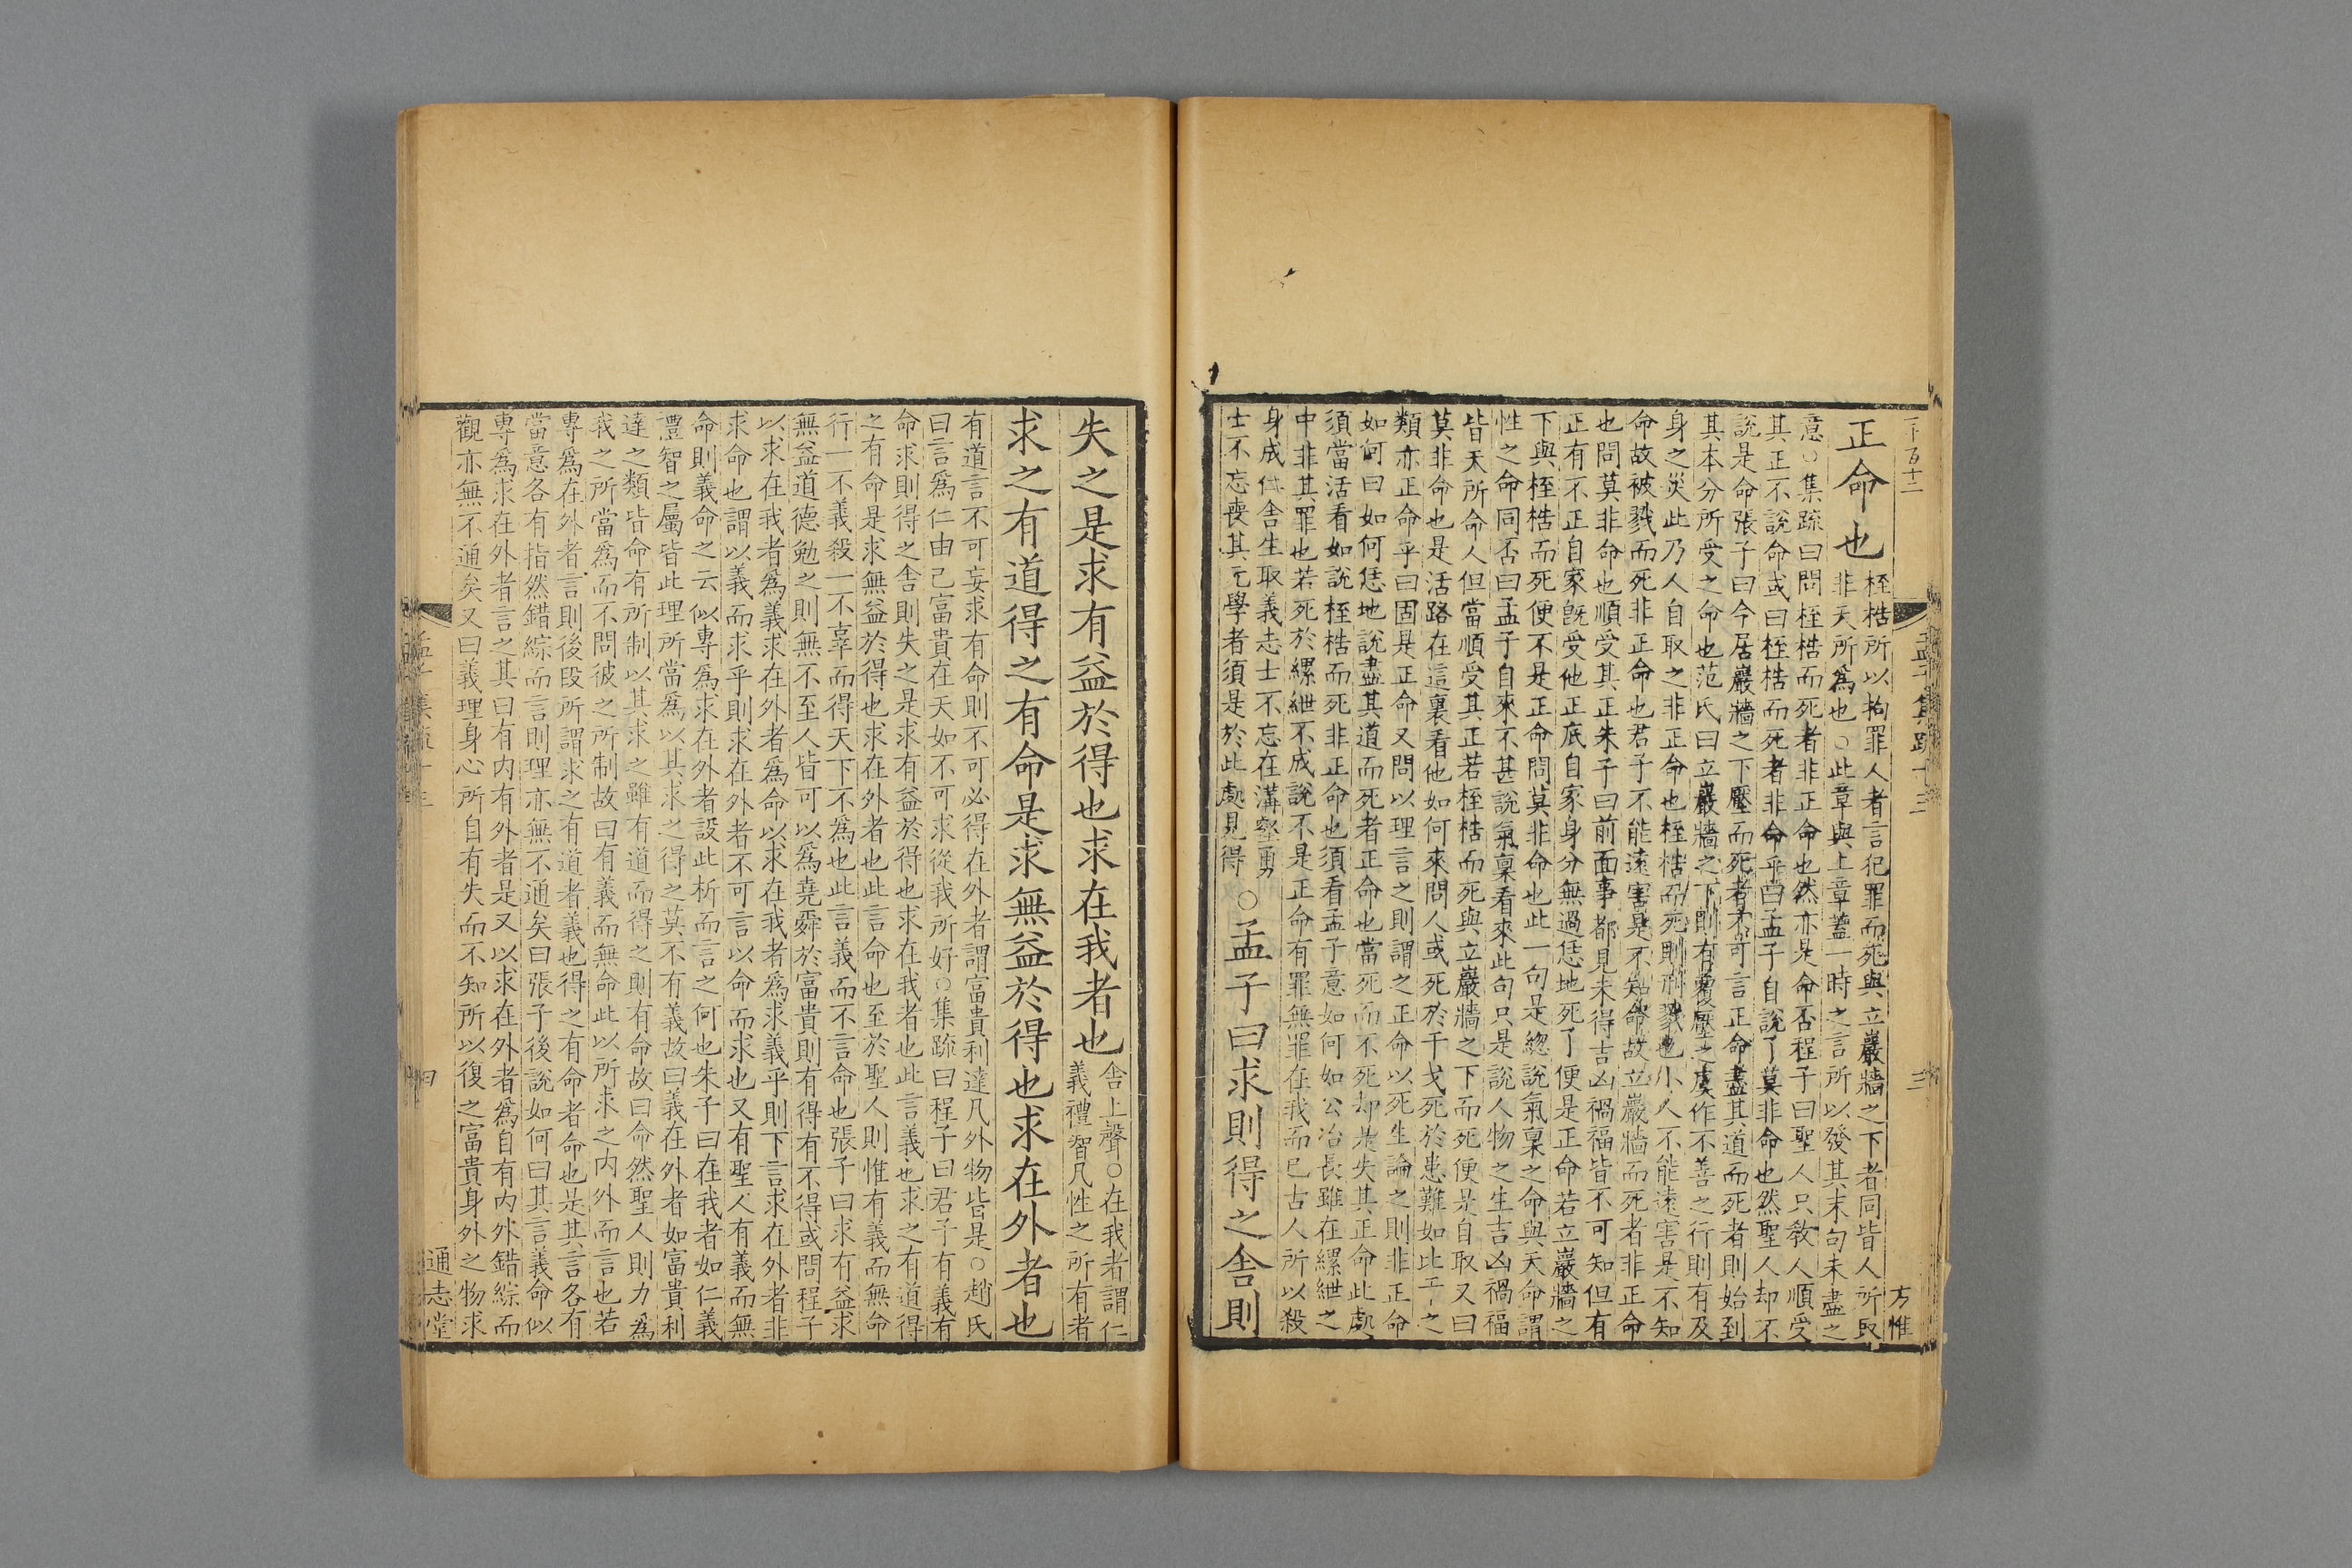 正命也
桎梏所以拘罪人者言犯罪而死與立巖牆之下者同皆人所取
非天所為也○此章與上章蓋一時之言所以發其末句未盡之
意○集疏曰問桎梏而死者非正命也然亦是命否程子曰聖人只敎人順受
其正不說命或曰桎梏而死者非命乎曰孟子自說了莫非命也然聖人却不
說是命張子曰今居巖牆之下壓而死者不可言正命盡其道而死者則始到
其本分所受之命也范氏曰立巖牆之下則有覆壓之虞作不善之行則有及
身之災此乃人自取之非正命也桎梏而死則刑戮也小人不能遠害是不知
命故被戮而死非正命也君子不能遠害是不知命故立巖牆而死者非正命
也問莫非命也順受其正朱子曰前面事都見未得吉凶禍福皆不可知但有
正有不正自家旣受他正底自家身分無過恁地死了便是正命若立巖牆之
下與桎梏而死便不是正命問莫非命也此一句是緫說氣稟之命與天命謂
性之命同否曰孟子自來不甚說氣稟看來此句只是說人物之生吉凶禍福
皆天所命人但當順受其正若桎梏而死與立巖牆之下而死便是自取又曰
莫非命也是活路在這裏看他如何來問人或死於干戈死於患難如比干之
類亦正命乎曰固是正命又問以理言之則謂之正命以死生論之則非正命
如何曰如何恁地說盡其道而死者正命也當死而不死却是失其正命此處
須當活看如說桎梏而死非正命也須看孟子意如何如公冶長雖在縲紲之
中非其罪也若死於縲紲不成說不是正命有罪無罪在我而已古人所以殺
身成仁舍生取義志士不忘在溝壑勇
士不忘喪其元學者須是於此處見得
○孟子曰求則得之舍則
孟子集疏十三
三
方惟
失之是求有益於得也求在我者也
舍上聲○在我者謂仁
義禮智凡性之所有者
求之有道得之有命是求無益於得也求在外者也
有道言不可妄求有命則不可必得在外者謂富貴利達凡外物皆是○趙氏
曰言為仁由己富貴在天如不可求從我所好○集疏曰程子曰君子有義有
命求則得之舍則失之是求有益於得也求在我者也此言義也求之有道得
之有命是求無益於得也求在外者也此言命也至於聖人則惟有義而無命
行一不義殺一不辜而得天下不為也此言義而不言命也張子曰求有益求
無益道德勉之則無不至人皆可以為堯舜於富貴則有得有不得或問程子
以求在我者為義求在外者為命以求在我者為求義乎則下言求在外者非
求命也謂以義而求乎則求在外者不可言以命而求也又有聖人有義而無
命則義命之云似專為求在外者設此析而言之何也朱子曰在我者如仁義
禮智之屬皆此理所當為以其求之得之莫不有義故曰義在外者如富貴利
達之類皆命有所制以其求之雖有道而得之則有命故曰命然聖人則力為
我之所當為而不問彼之所制故曰有義而無命此以所求之內外而言也若
專為在外者言則後段所謂求之有道者義也得之有命者命也是其言各有
當意各有指然錯綜而言則理亦無不通矣曰張子後說如何曰其言義命似
專為求在外者言之其曰有內有外者是又以求在外者為自有內外錯綜而
觀亦無不通矣又曰義理身心所自有失而不知所以復之富貴身外之物求
孟子集疏十三
四
通志堂